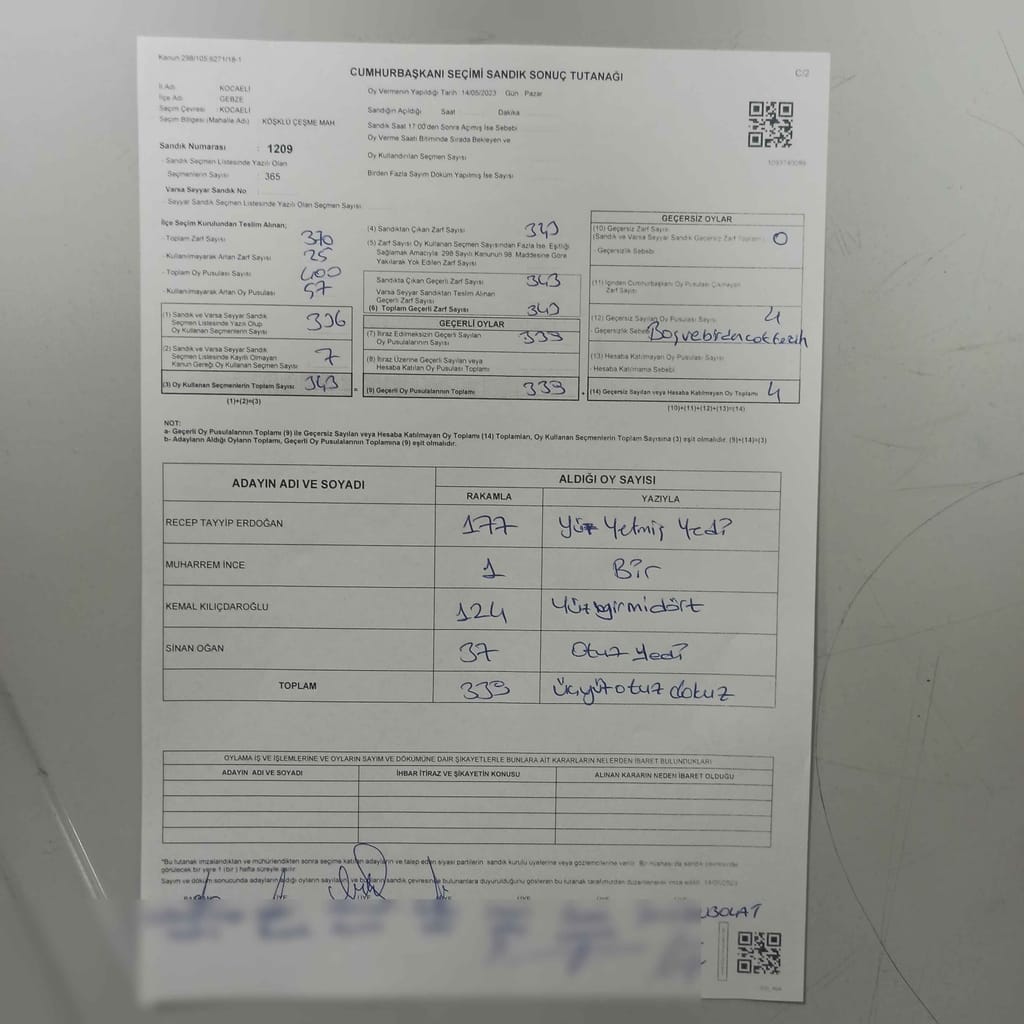 Kanun 298/105 6271/18-1
CUMHURBAŞKANI SEÇİMİ SANDIK SONUÇ TUTANAĞI
C/2
İl Adı KOCAELİ
İlçe Adı GEBZE
Seçim Çevresi KOCAELİ
Seçim Bölgesi (Mahalle Adı) : KÖŞKLÜ ÇEŞME MAH
Sandık Numarası : 1209
- Sandık Seçmen Listesinde Yazılı Olan
Seçmenlerin Sayısı : 365
Varsa Seyyar Sandık No
- Seyyar Sandık Seçmen Listesinde Yazılı Olan Seçmen Sayısı
Oy Vermenin Yapıldığı Tarih : 14/05/2023 Gün : Pazar
Sandığın Açıldığı Saat Dakika
Sandık Saat 17:00'den Sonra Açımış İse Sebebi
Oy Verme Saati Bitiminde Sırada Bekleyen ve
Oy Kullandırılan Seçmen Sayısı
Birden Fazla Sayım Döküm Yapılmış İse Sayısı
İlçe Seçim Kurulundan Teslim Alınan;
- Toplam Zarf Sayısı 370
- Kullanılmayarak Artan Zarf Sayısı 25
- Toplam Oy Pusulası Sayısı 400
- Kullanılmayarak Artan Oy Pusulası 57
(1) Sandık ve Varsa Seyyar Sandık
Seçmen Listesinde Yazılı Olup
Oy Kullanan Seçmenlerin Sayısı 336
(2) Sandık ve Varsa Seyyar Sandık
Seçmen Listesinde Kayıtlı Olmayan
Kanun Gereği Oy Kullanan Seçmen Sayısı 7
(3) Oy Kullanan Seçmenlerin Toplam Sayısı 343
(1)+(2)=(3)
(4) Sandıktan Çıkan Zarf Sayısı 343
(5) Zarf Sayısı Oy Kullanan Seçmen Sayısından Fazla İse, Eşitliği
Sağlamak Amacıyla; 298 Sayılı Kanunun 98. Maddesine Göre
Yakılarak Yok Edilen Zarf Sayısı
Sandıkta Çıkan Geçerli Zarf Sayısı 343
Varsa Seyyar Sandıktan Teslim Alınan
Geçerli Zarf Sayısı
(6) Toplam Geçerli Zarf Sayısı 343
GEÇERLİ OYLAR
(7) İtiraz Edilmeksizin Geçerli Sayılan
Oy Pusulalarının Sayısı 339
(8) İtiraz Üzerine Geçerli Sayılan veya
Hesaba Katılan Oy Pusulası Toplamı
(9) Geçerli Oy Pusulalarının Toplamı 339
GEÇERSİZ OYLAR
(10) Geçersiz Zarf Sayısı
(Sandık ve Varsa Seyyar Sandık Geçersiz Zarf Toplamı) 0
- Geçersizlik Sebebi
(11) İçinden Cumhurbaşkanı Oy Pusulası Çıkmayan
Zarf Sayısı
(12) Geçersiz Sayılan Oy Pusulası Sayısı 4
- Geçersizlik Sebebi Boş ve birden çok tercih
(13) Hesaba Katılmayan Oy Pusulası Sayısı
- Hesaba Katılmama Sebebi
(14) Geçersiz Sayılan veya Hesaba Katılmayan Oy Toplamı 4
(10)+(11)+(12)+(13)=(14)
NOT:
a- Geçerli Oy Pusulalarının Toplamı (9) ile Geçersiz Sayılan veya Hesaba Katılmayan Oy Toplamı (14) Toplamları, Oy Kullanan Seçmenlerin Toplam Sayısına (3) eşit olmalıdır. (9)+(14)=(3)
b- Adayların Aldığı Oyların Toplamı, Geçerli Oy Pusulalarının Toplamına (9) eşit olmalıdır.
ADAYIN ADI VE SOYADI ALDIĞI OY SAYISI
RAKAMLA YAZIYLA
RECEP TAYYİP ERDOĞAN 177 Yüz Yetmiş Yedi
MUHARREM İNCE 1 Bir
KEMAL KILIÇDAROĞLU 124 Yüzyirmidört
SİNAN OĞAN 37 Otuz Yedi
TOPLAM 339 üçyüzotuz dokuz
OYLAMA İŞ VE İŞLEMLERİNE VE OYLARIN SAYIM VE DÖKÜMÜNE DAİR ŞİKAYETLERLE BUNLARA AİT KARARLARIN NELERDEN İBARET BULUNDUKLARI
ADAYIN ADI VE SOYADI İHBAR İTİRAZ VE ŞİKAYETİN KONUSU ALINAN KARARIN NEDEN İBARET OLDUĞU
"Bu tutanak imzalandıktan ve mühürlendikten sonra seçime katılan adayların ve talep eden siyasi partilerin sandık kurulu üyelerine veya gözlemcilerine verilir. Bir nüshası da sandık çevresinde
görülecek bir yere 1 (bir) hafta süreyle asılır.